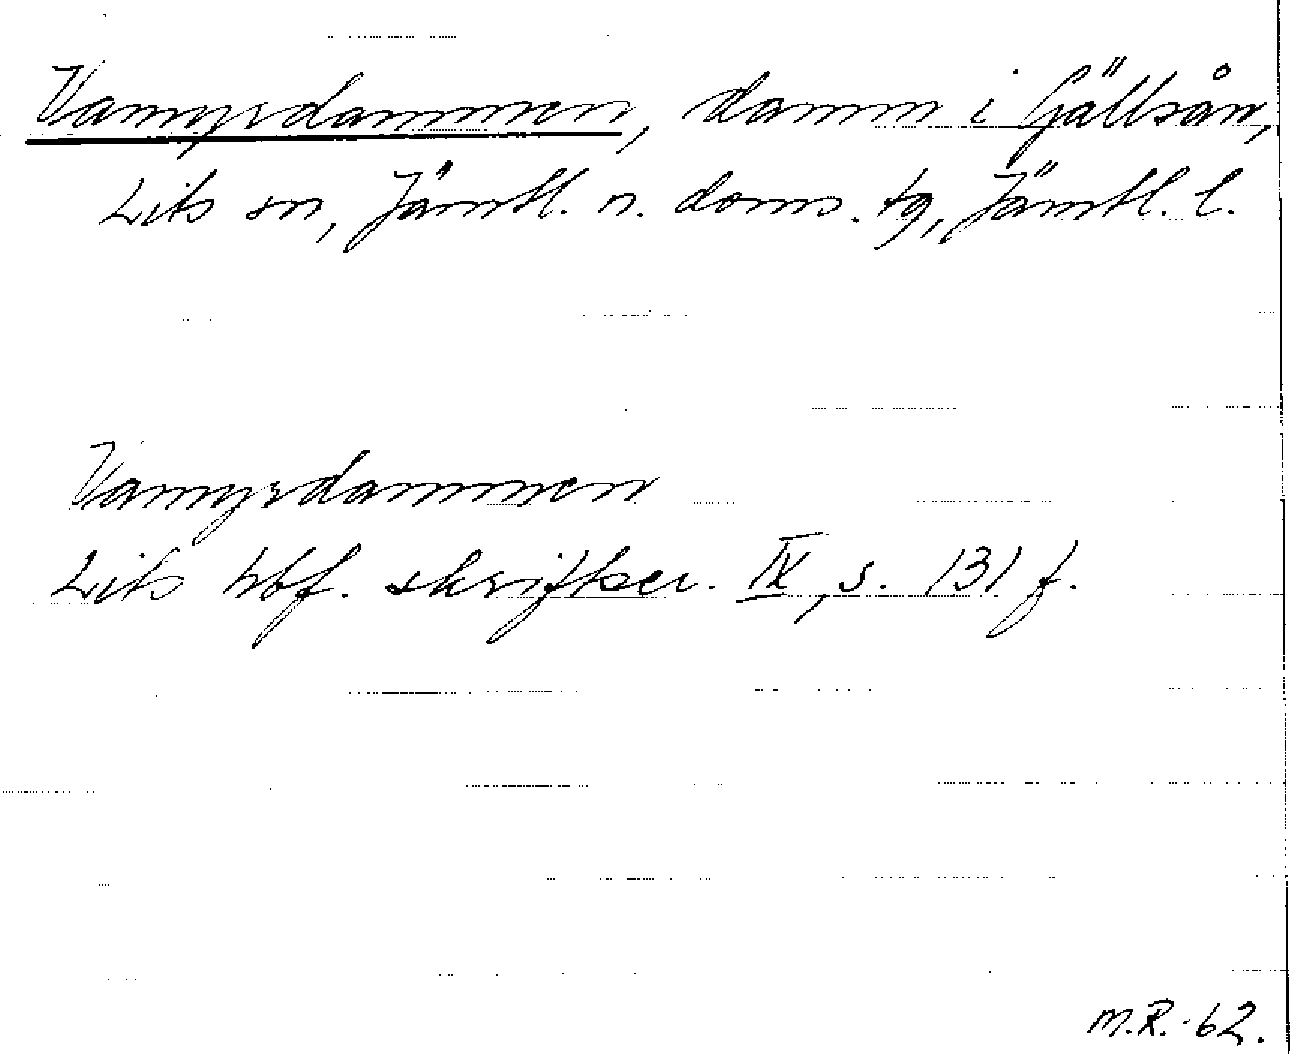 Vamyrdammen, damm i Gällsån,
Lits sn, Jämtl. n. doms. tg, Jämtl. l.
Vamyrdammen
Lits hbf. skriftser. IX, s. 131 f.
M.R.-62.